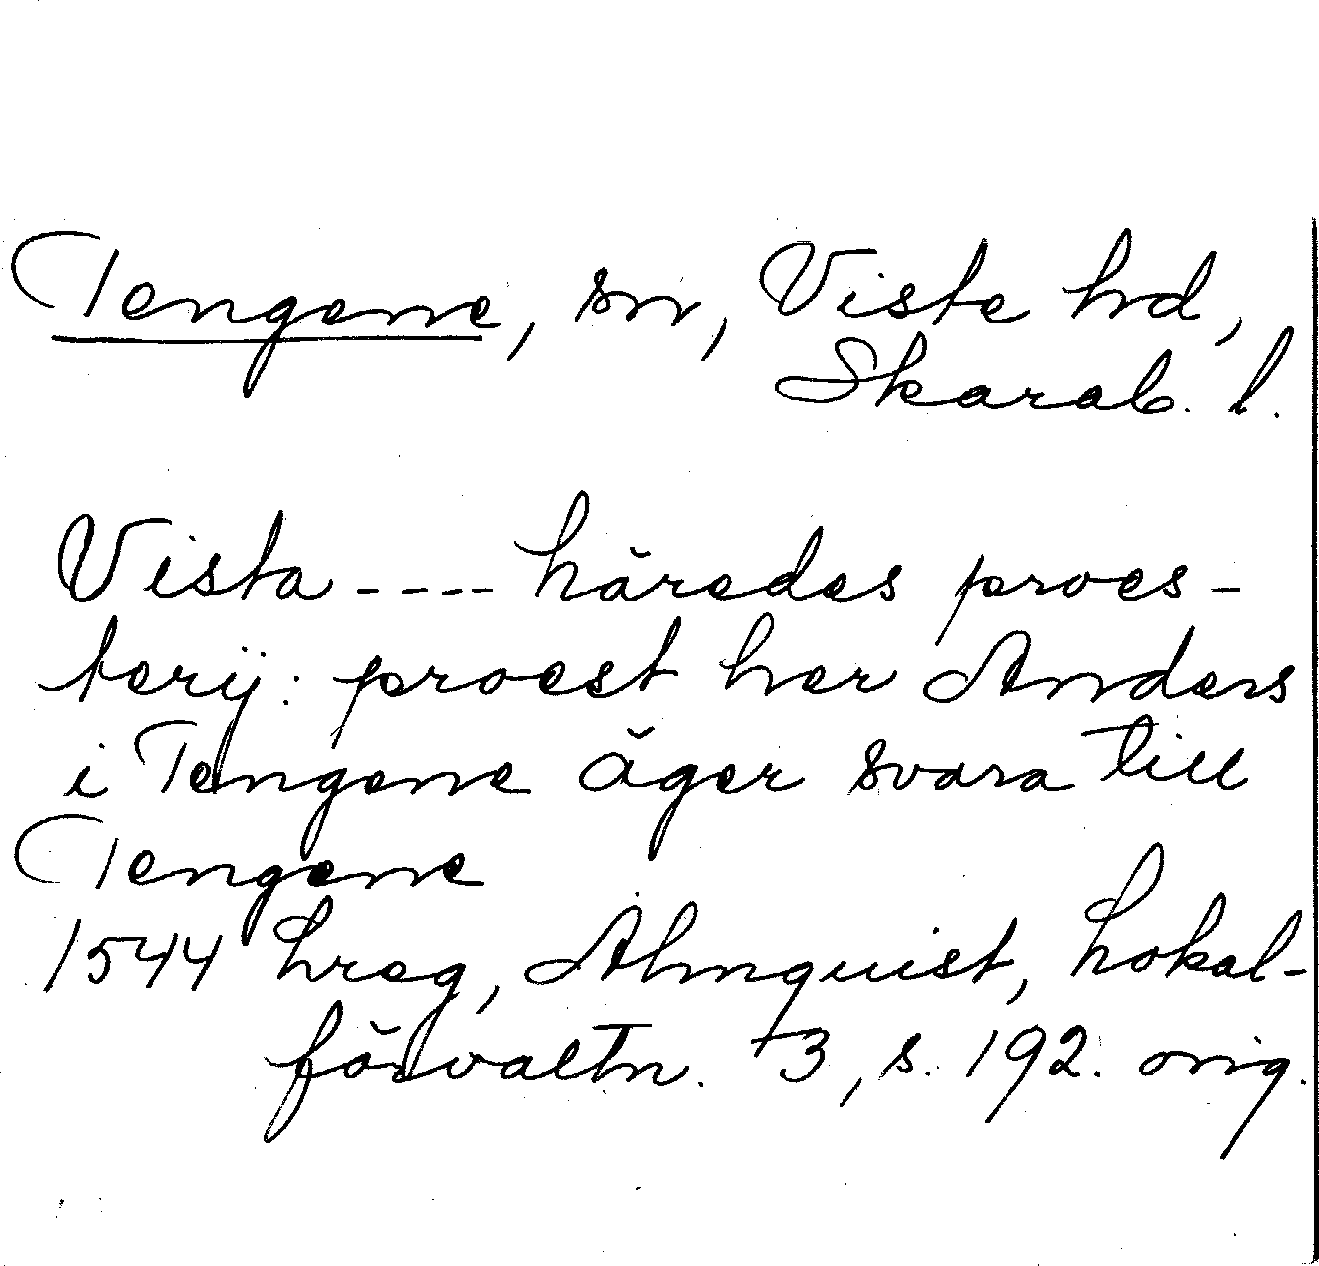 Tengene, sn, Viste hd,
Skarab. l.
Vista ---- häredes proes-
terij: proest her Anders
i Tengene äger svara till
Tengene
1544 Lreg, Almquist, Lokal-
förvaltn. 3, s. 192. orig.